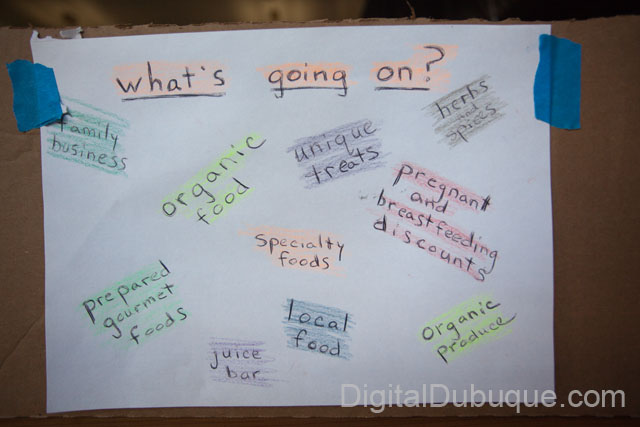 what's going on?
family
business
organic
food
unique
treats
herbs
and
spices
pregnant
and
breastfeeding
discounts
specialty
foods
prepared
gourmet
foods
local
food
organic
produce
juice
bar
DigitalDubuque.com